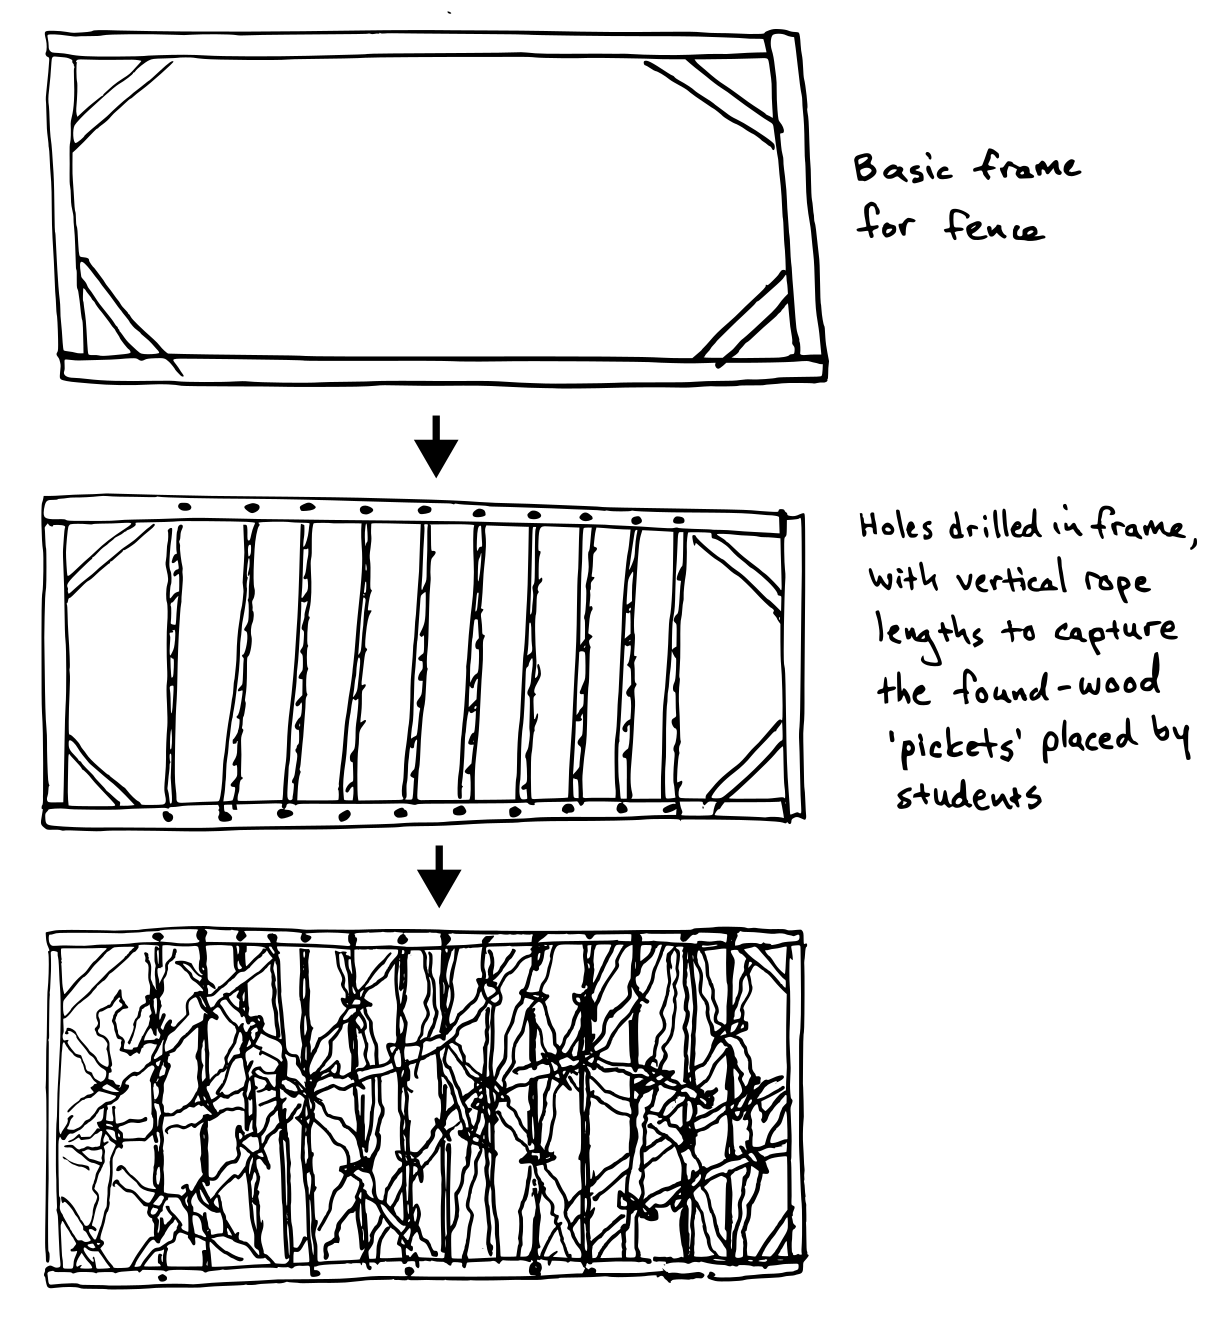 Basic frame
for fence
Holes drilled in frame,
with vertical rope
lengths to capture
the found-wood
'pickets' placed by
students